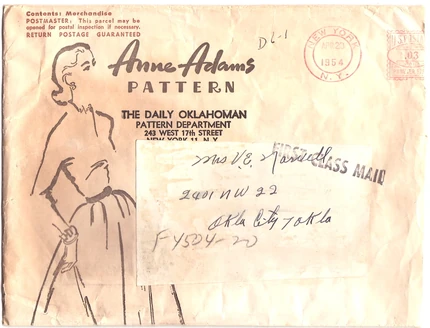 Contents: Merchandise
POSTMASTER: This parcel may be
opened for postal inspection if necessary.
RETURN POSTAGE GUARANTEED
D6-1
NEW YORK
1954
N.Y.
.03
Anne Adams
PATTERN
THE DAILY OKLAHOMAN
PATTERN DEPARTMENT
243 WEST 17th STREET
NEW YORK 11, N.Y.
Mrs V.E.
FIRST CLASS MAIL
2401 NW 22
Okla City, Okla
F4504-20